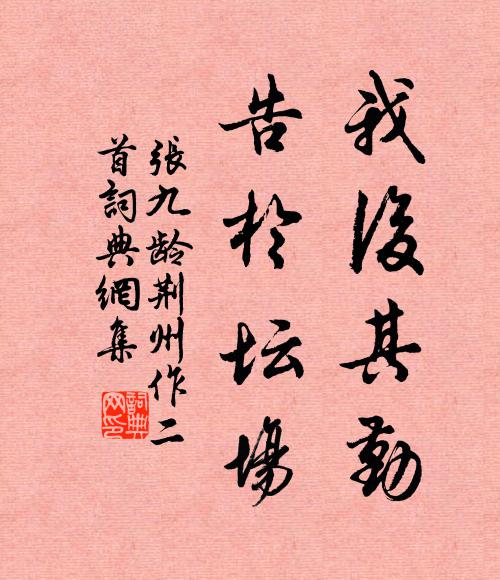 我後其勤
告於坛場
張九龄荆州作二
首詞典網集
詞典
网印